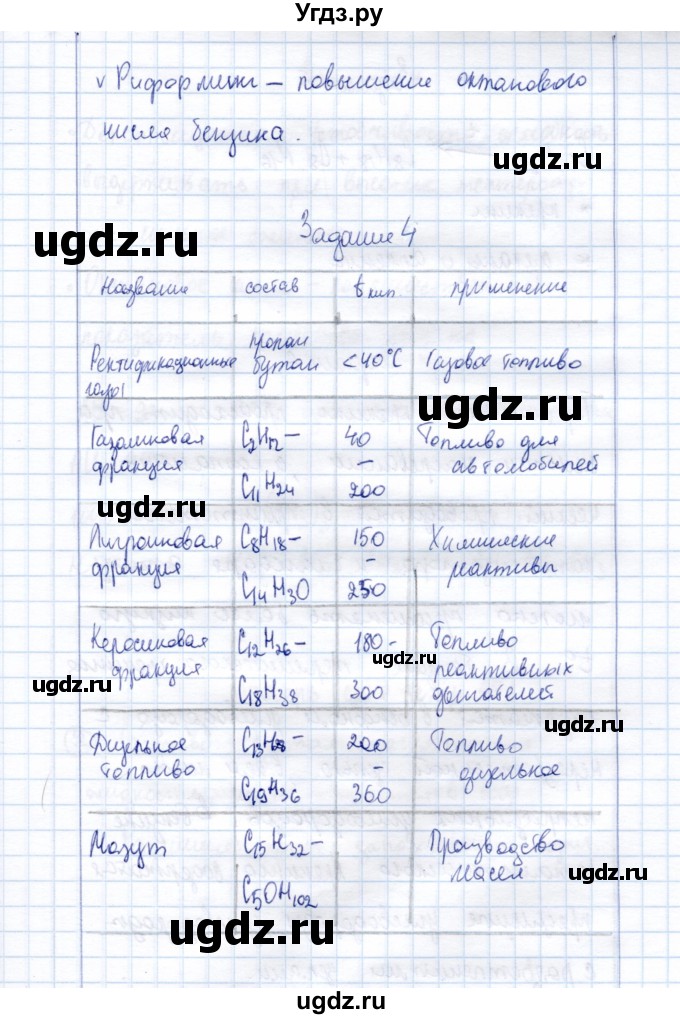 Угдз.ру
v Риформинг – повышение октанового
числа бензина.
ugdz.ru
ugdz.ru
Задание 4
Название состав tкип. применение
Ректификационные газы пропан бутан <40°C Газовое топливо
ugdz.ru
Газолиновая фракция C2H12 – C11H24 40 – 200 Топливо для автомобилей
ugdz.ru
Лигроиновая фракция C8H18 – C14H3O 150 – 250 Химические реактивы
Керосиновая фракция C12H26 – C18H38 180 – 300 Топливо реактивных двигателей
ugdz.ru
ugdz.ru
ugdz.ru
Дизельное топливо C13H28 – C19H36 200 – 360 Топливо дизельное
Мазут C15H32 – C5OH102 Производство масел
ugdz.ru
ugdz.ru
ugdz.ru